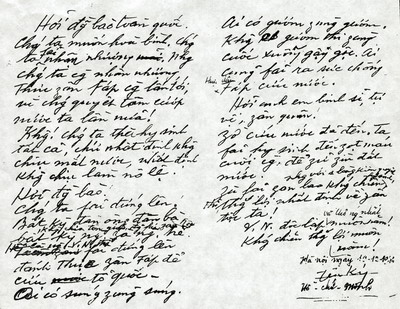 Hỡi đồng bào toàn quốc.
Chúng ta muốn hoà bình, chúng
ta phải nhân nhượng. Nhưng
chúng ta càng nhân nhượng
thực zân Fáp càng lấn tới,
vì chúng quyết tâm cướp
nước ta lần nữa!
Không! Chúng ta thà hy sinh
tất cả, chứ nhất định không
chịu mất nước, nhất định
không chịu làm nô lệ.
Hỡi đồng bào,
Chúng ta fải đứng lên,
Bất kỳ đàn ông đàn bà,
fải đứng lên
đánh Thực zân Fáp để
cứu tổ quốc
Ai có súng zùng súng.
Ai có gươm zùng gươm,
Không có gươm thì zùng
cuốc xuổng gậy gộc. Ai
cũng fải ra sức chống
Fáp cứu nước.
Hỡi anh em binh sĩ, tự
vệ, zân quân.
Zờ cứu nước đã đến, ta
fải hy sinh đến zọt máu
cuối cùng, để zữ zìn đất
nước.
Zù fải zan lao kháng chiến,
thắng lợi nhất định về zân
tộc ta!
V.N. độc lập muôn năm!
Kháng chiến thắng lợi muôn
năm!
Hà nội ngày 19-12-1946
Hồ-chí-Minh